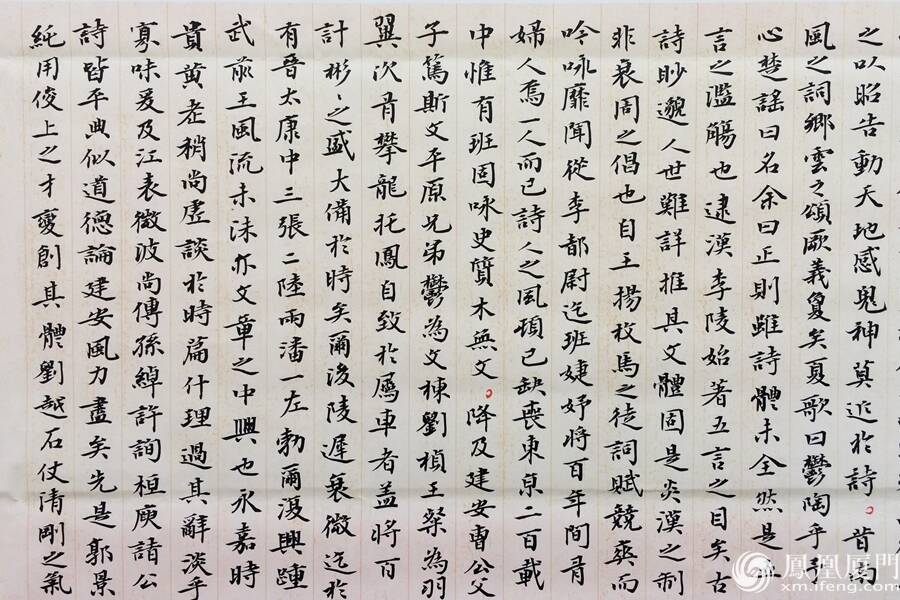 之以昭告動天地感鬼神莫近於詩。昔南
風之詞卿雲之頌厥義夐矣夏歌曰鬱陶乎予
心楚謠曰名余曰正則雖詩體未全然是五
言之濫觴也逮漢李陵始著五言之目矣古
詩眇邈人世難詳推其文體固是炎漢之制
非衰周之倡也自王揚枚馬之徒詞賦競爽而
吟咏靡聞從李都尉迄班婕妤將百年間有
婦人焉一人而已詩人之風頓已缺喪東京二百載
中惟有班固咏史質木無文。降及建安曹公父
子篤斯文平原兄弟鬱為文棟劉楨王粲為羽
翼次有攀龍托鳳自致於屬車者蓋將百
計彬〻之盛大備於時矣爾後陵遲衰微迄於
有晉太康中三張二陸兩潘一左勃爾復興踵
武前王風流未沫亦文章之中興也永嘉時
貴黃老稍尚虛談於時篇什理過其辭淡乎
寡味爰及江表微波尚傳孫綽許詢桓庾諸公
詩皆平典似道德論建安風力盡矣先是郭景
純用俊上之才變創其體劉越石仗清剛之氣
鳳凰廈門
xm.ifeng.com